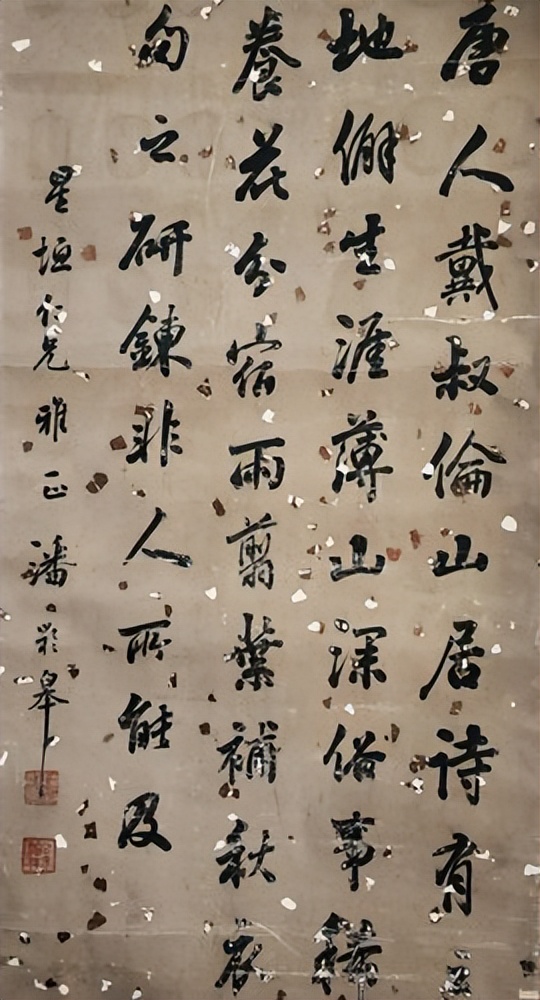 唐人戴叔倫山居詩有云
地僻生涯薄山深俗事稀
養花分宿雨翦葉補秋衣
句之研鍊非人所能及
星垣仁兄雅正潘齡皋